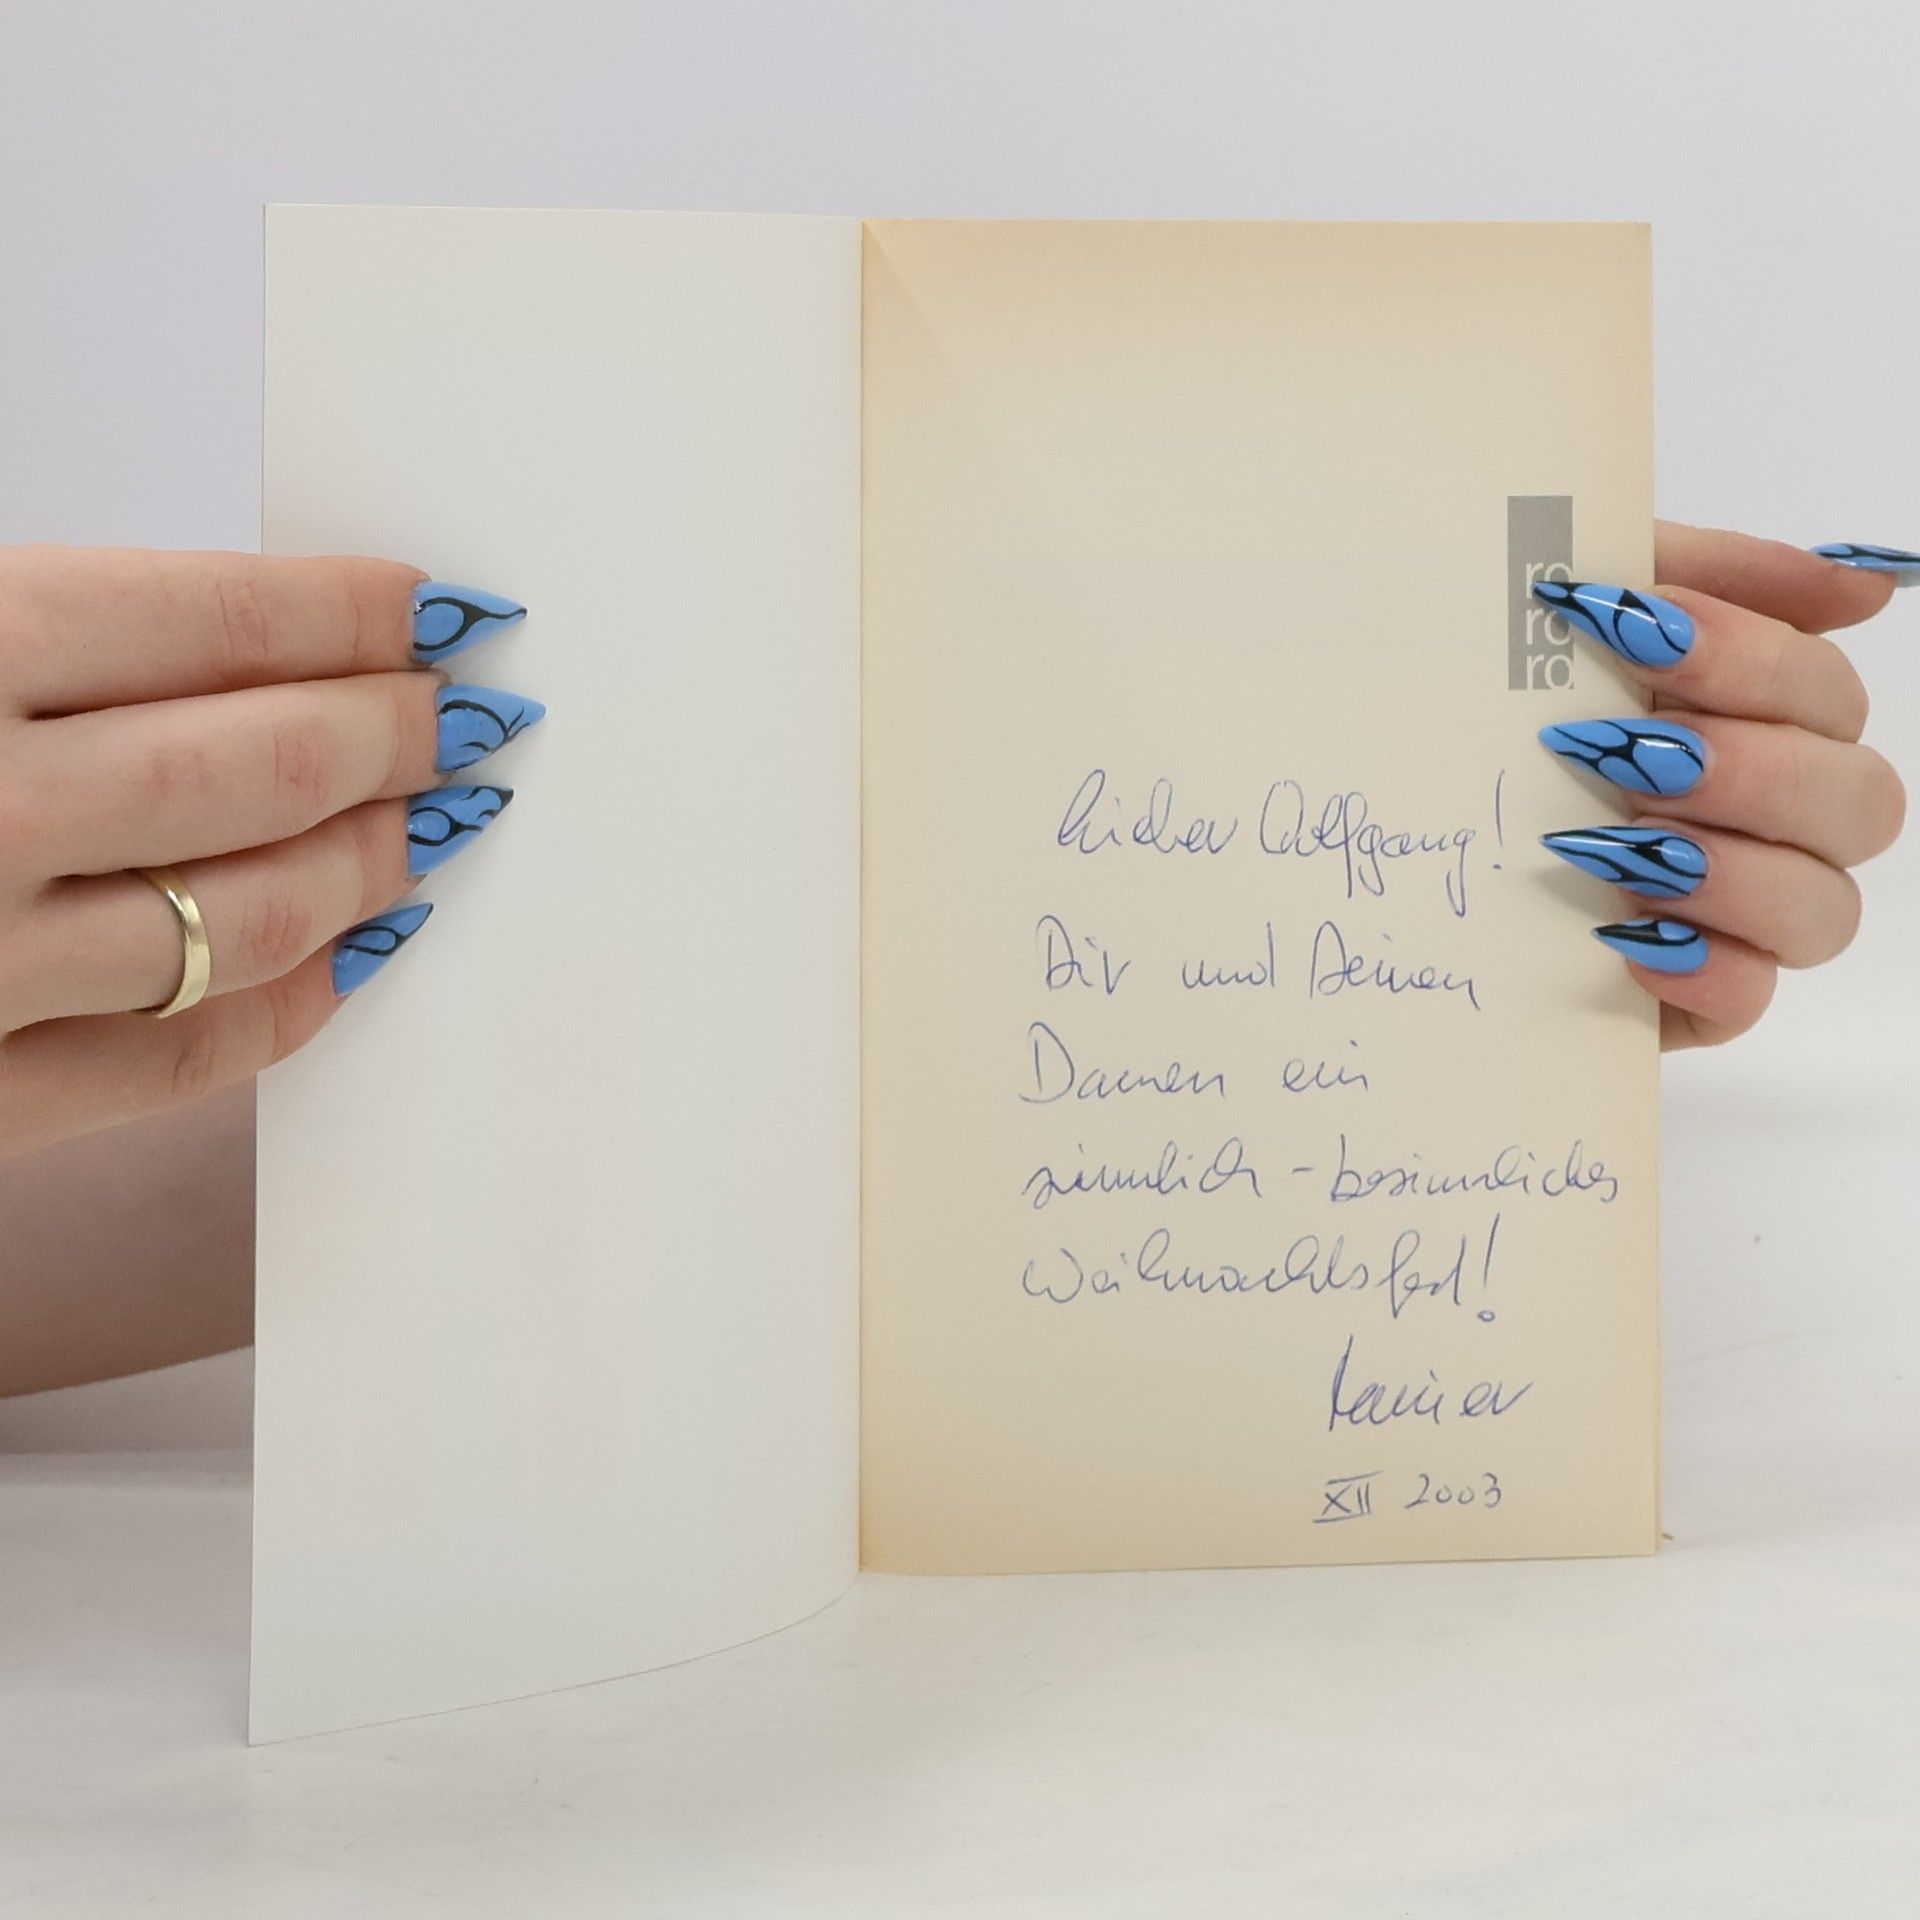 ro
ro
ro
Lieber Wolfgang!
Dir und Deinen
Damen ein
sinnlich - besinnliches
Weihnachtsfest!
Rainer
XII 2003